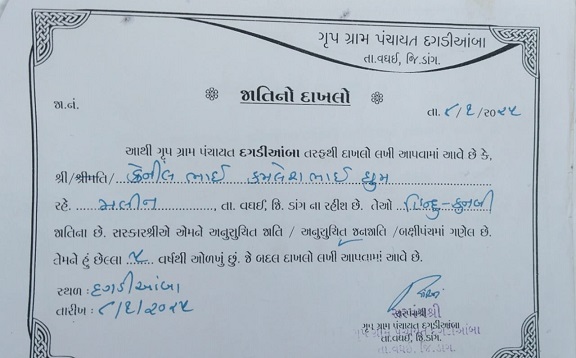 ગૃપ ગ્રામ પંચાયત દગડીઆંબા
તા.વઘઈ, જિ.ડાંગ.
જાતિનો દાખલો
જા.નં.
તા. ૮/૧/૨૦૨૫
આથી ગૃપ ગ્રામ પંચાયત દગડીઆંબા તરફથી દાખલો લખી આપવામાં આવે છે કે,
શ્રી/શ્રીમતિ/ ભાઈ કમલેશભાઈ
રહે. મલીન, તા. વઘઈ, જિ. ડાંગ ના રહીશ છે. તેઓ હિન્દુ-કુનબી
જાતિના છે. સરકારશ્રીએ એમને અનુસુચિત જાતિ / અનુસુચિત જનજાતિ /બક્ષીપંચમાં ગણેલ છે.
તેમને હું છેલ્લા વર્ષથી ઓળખું છું. જે બદલ દાખલો લખી આપવામાં આવે છે.
સ્થળ : દગડીઆંબા
તારીખ : ૮/૧/૨૦૨૫
સરપંચશ્રી
ગૃપ ગ્રામ પંચાયત દગડીઆંબા
તા.વઘઈ, જિ.ડાંગ.